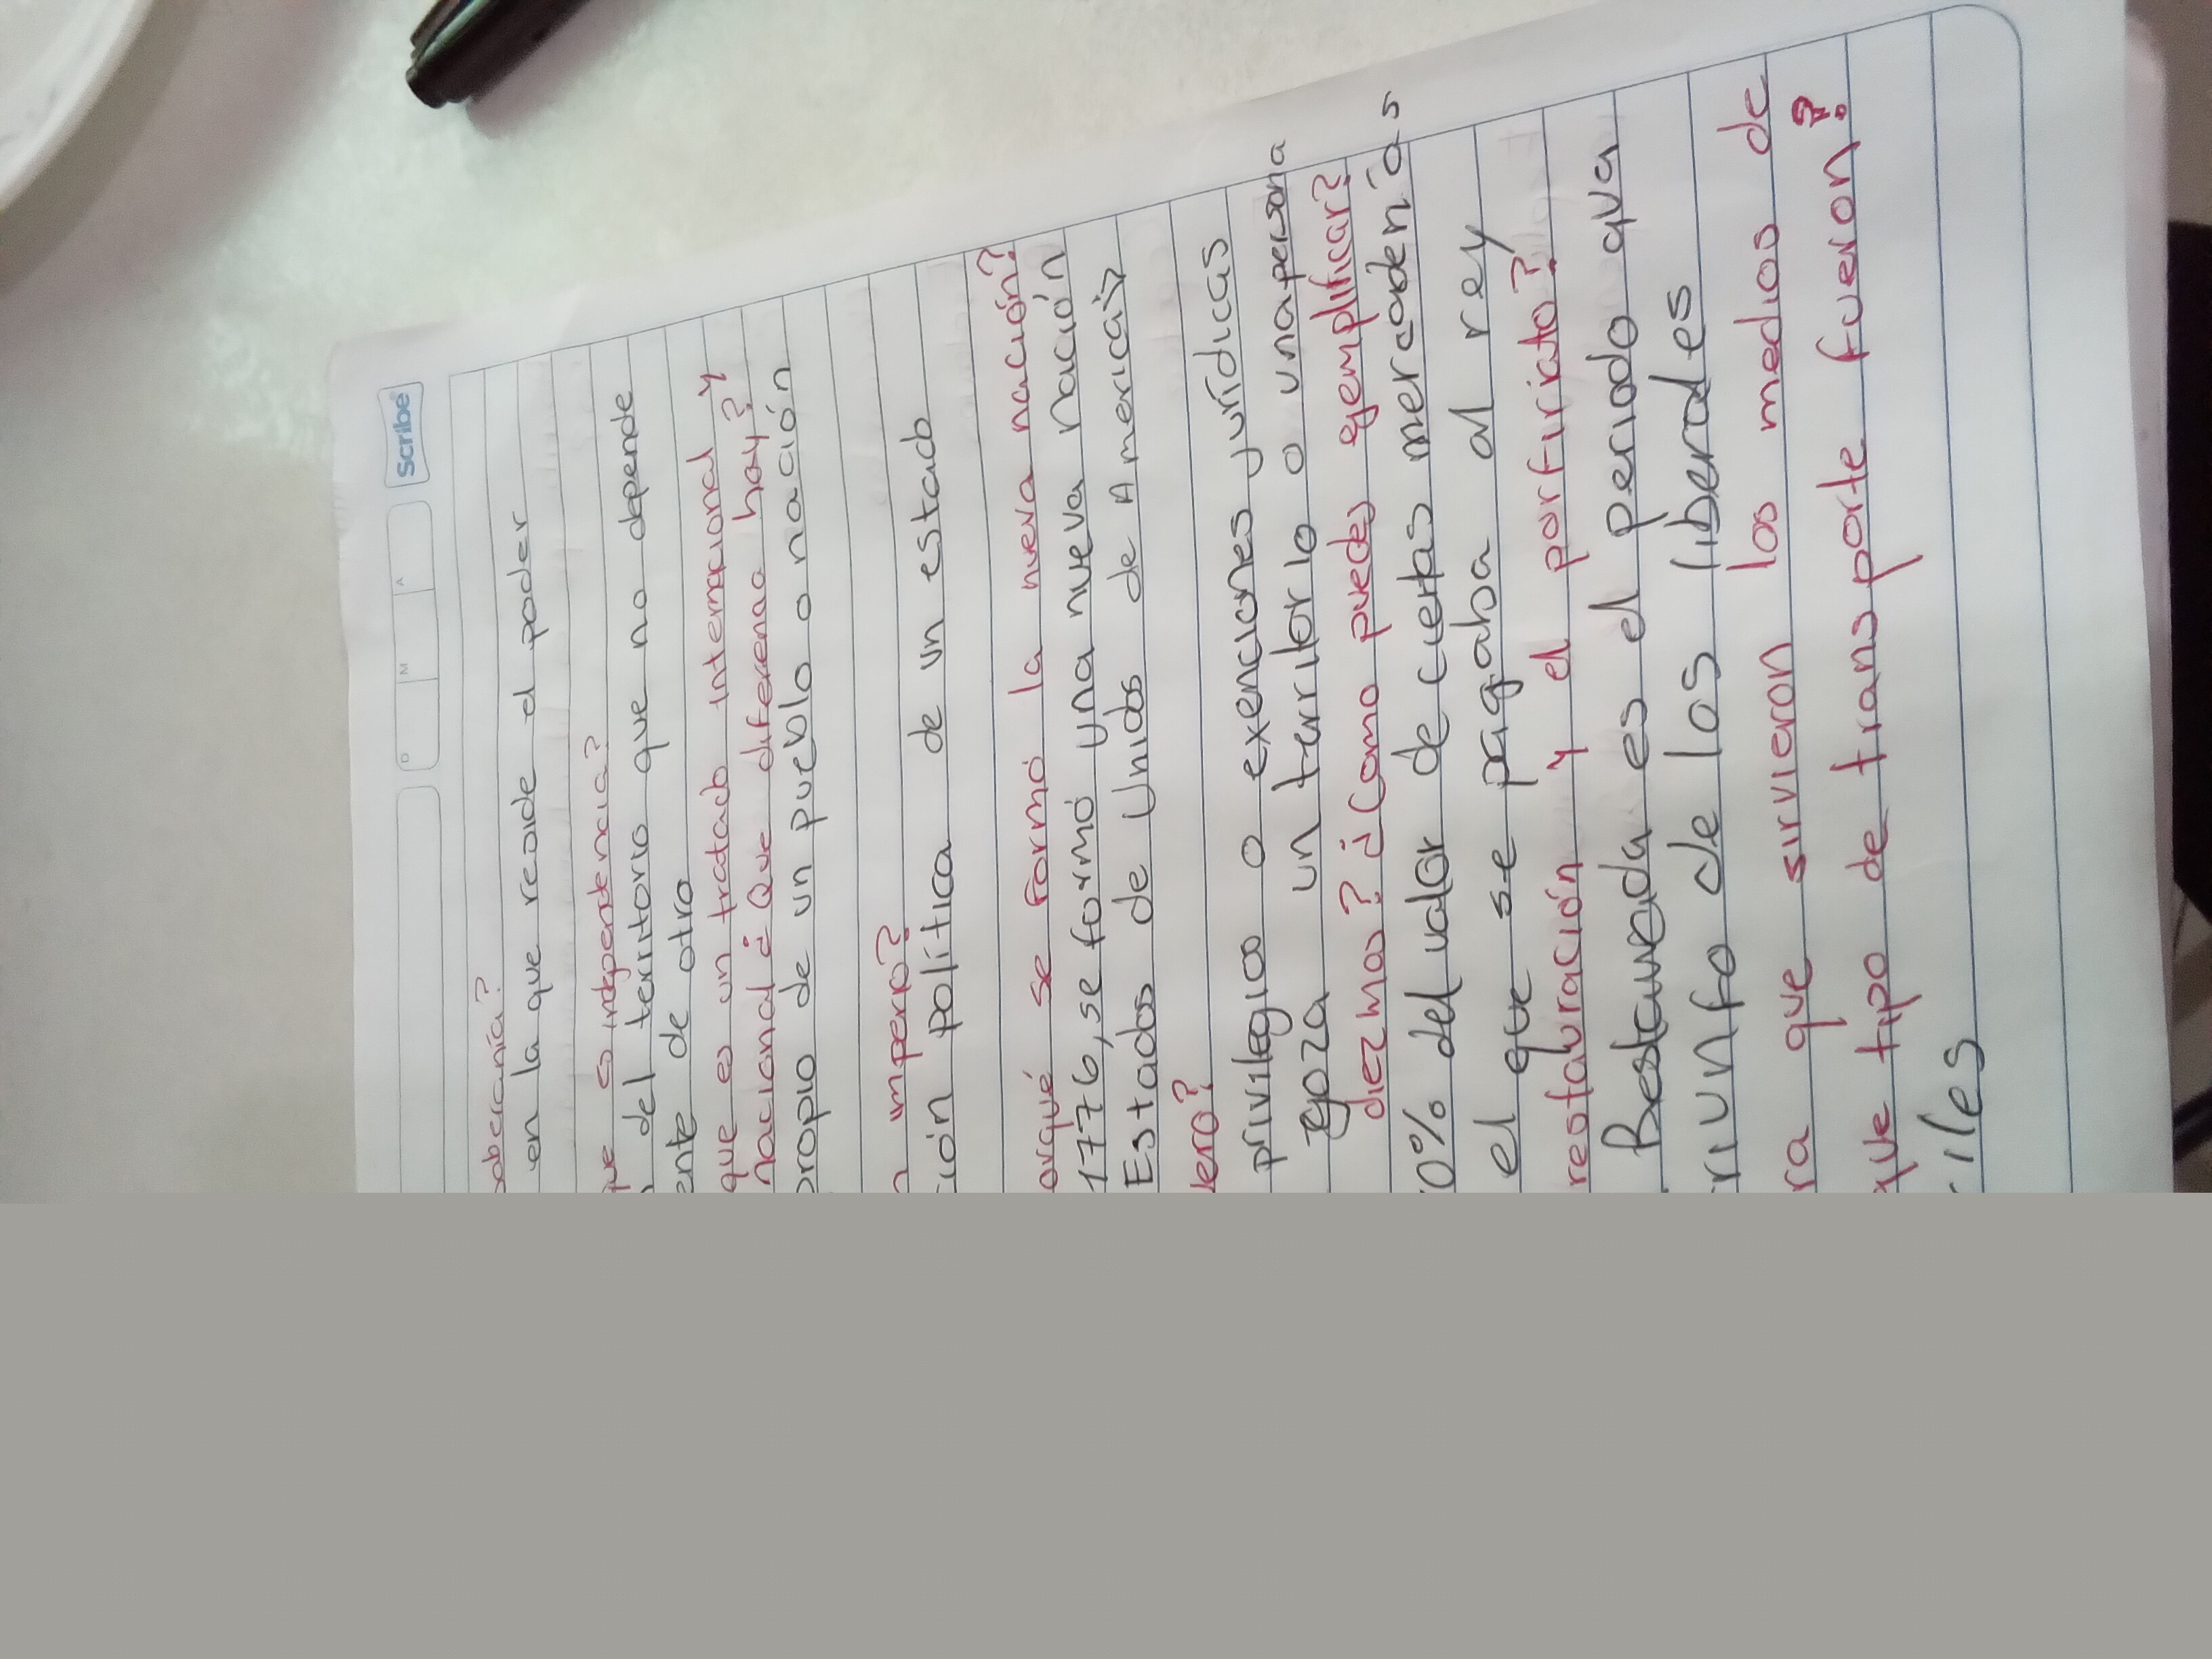 Scribe
D M A
soberanía?
en la que recide el poder
que es independencia?
del territorio que no depende
ente de otro
que es un tratado internacional y
nacional ¿Que diferencia hay?
propio de un pueblo o nación
n imperio?
ción política de un estado
orqué se formó la nueva nación?
1776, se formó una nueva nación
Estados de Unidos de America
lero?
privilegios o exenciones jurídicas
goza un territorio o una persona
diezmos? ¿Como puedes ejemplificar?
0% del valor de ciertas mercadenías
el que se pagaba al rey
restauración y el porfiriato?
es el periodo qva
riunfo de los liberales
ra que sirvieron los medios de
que tipo de transporte fueron?
iles